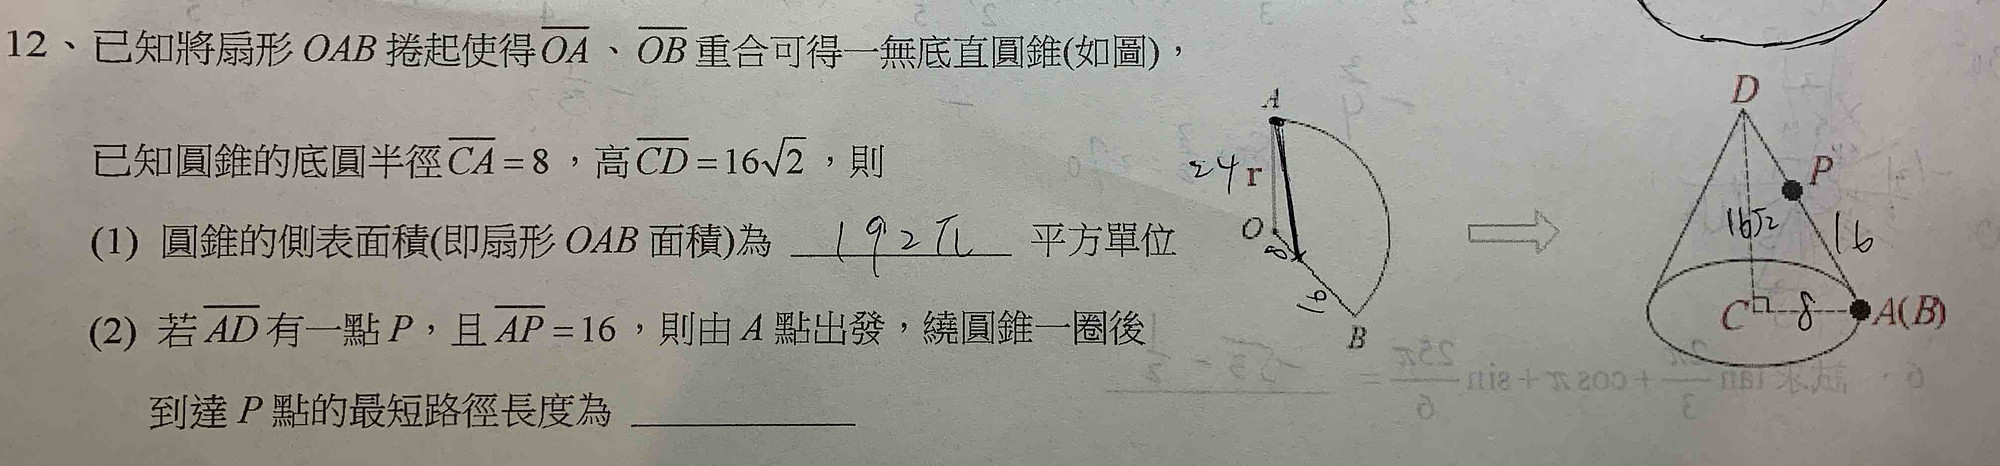 12、已知將扇形 OAB 捲起使得 OA、OB 重合可得一無底直圓錐(如圖)，
已知圓錐的底圓半徑 CA = 8，高 CD = 16√2，則
(1) 圓錐的側表面積(即扇形 OAB 面積)為 192π 平方單位
(2) 若 AD 有一點 P，且 AP = 16，則由 A 點出發，繞圓錐一圈後
到達 P 點的最短路徑長度為
A
24 r
O
8
16
B
D
P
16√2
16
C
8
A(B)